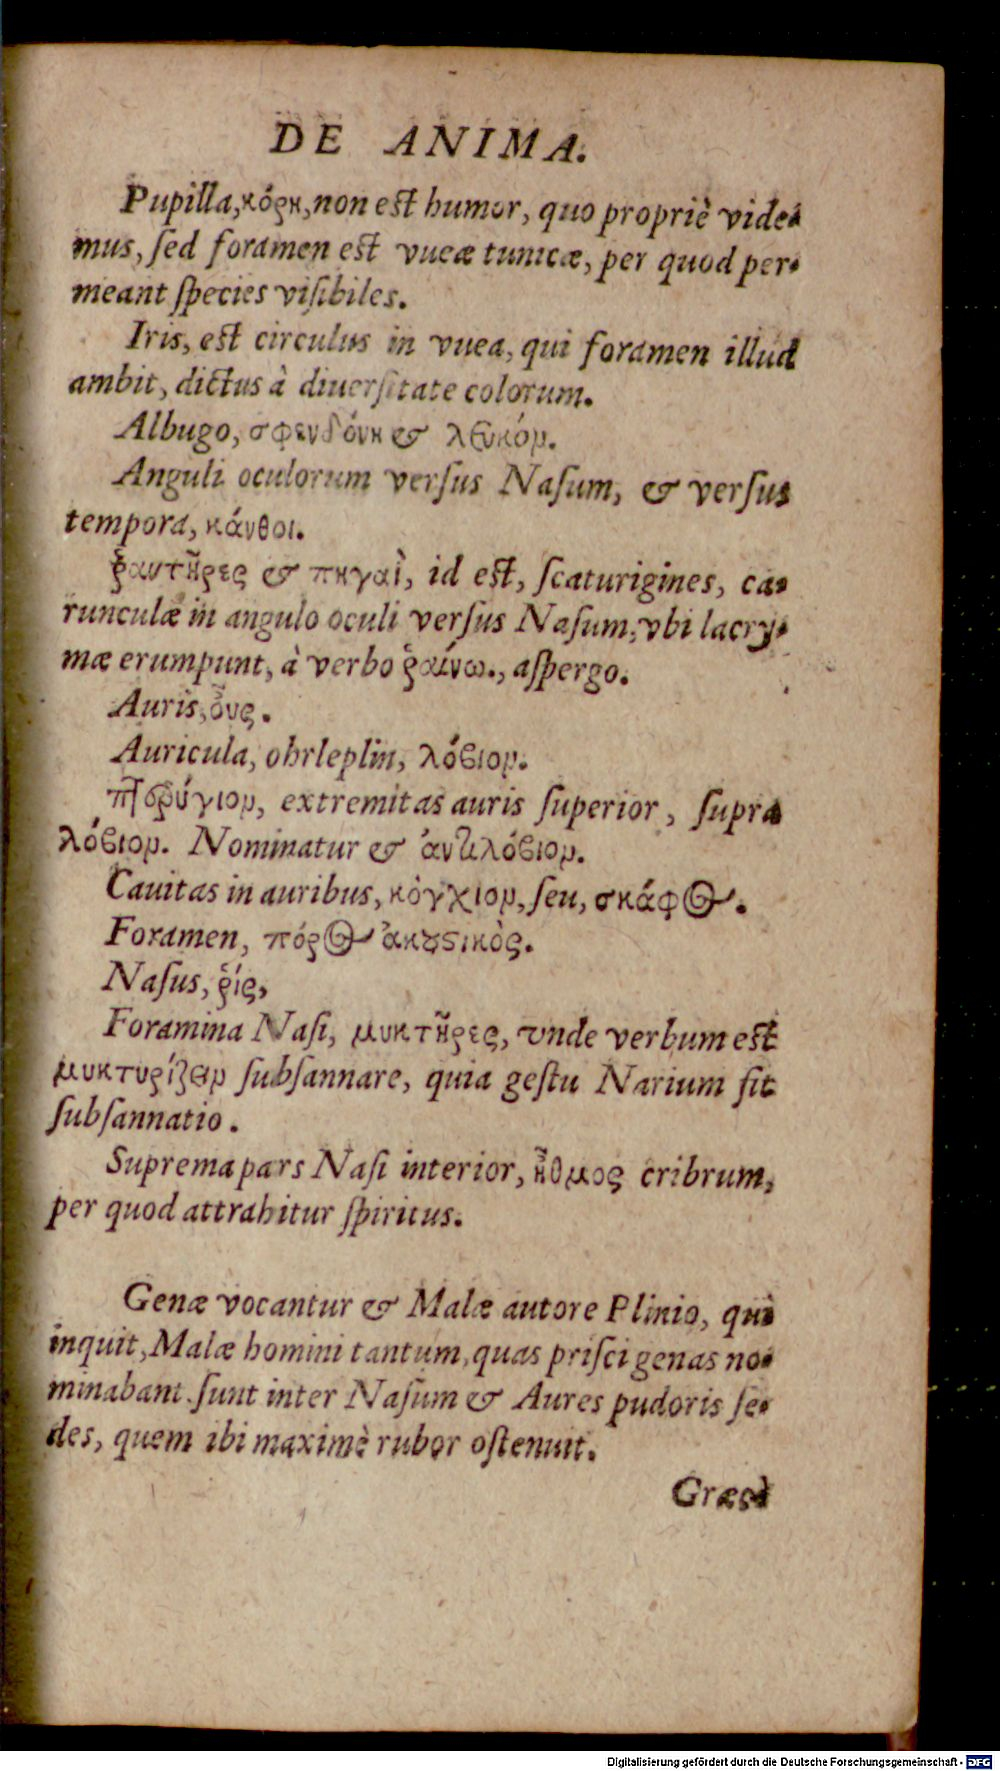 DE ANIMA.
Pupilla, κόρη, non est humor, quo propriè vide-
mus, sed foramen est vueæ tunicæ, per quod per-
meant species visibiles.
Iris, est circulus in vuea, qui foramen illud
ambit, dictus à diuersitate colorum.
Albugo, σφενδόνη & λευκόν.
Anguli oculorum versus Nasum, & versus
tempora, κάνθοι.
ῥαντῆρες & πηγαὶ, id est, scaturigines, ca-
runculæ in angulo oculi versus Nasum, vbi lacry-
mæ erumpunt, à verbo ῥαίνω., aspergo.
Auris, οὖς.
Auricula, ohrleplin, λόβιον.
πτερύγιον, extremitas auris superior, supra
λόβιον. Nominatur & ἀντιλόβιον.
Cauitas in auribus, κόγχιον, seu, σκάφος.
Foramen, πόρος ἀκουστικὸς.
Nasus, ῥίς,
Foramina Nasi, μυκτῆρες, vnde verbum est
μυκτυρίζειν subsannare, quia gestu Narium fit
subsannatio.
Suprema pars Nasi interior, ἦθμος cribrum,
per quod attrahitur spiritus.
Genæ vocantur & Malæ autore Plinio, qui
inquit, Malæ homini tantum, quas prisci genas no-
minabant. sunt inter Nasum & Aures pudoris se-
des, quem ibi maximè rubor ostenuit.
Græcè
Digitalisierung gefördert durch die Deutsche Forschungsgemeinschaft - DFG